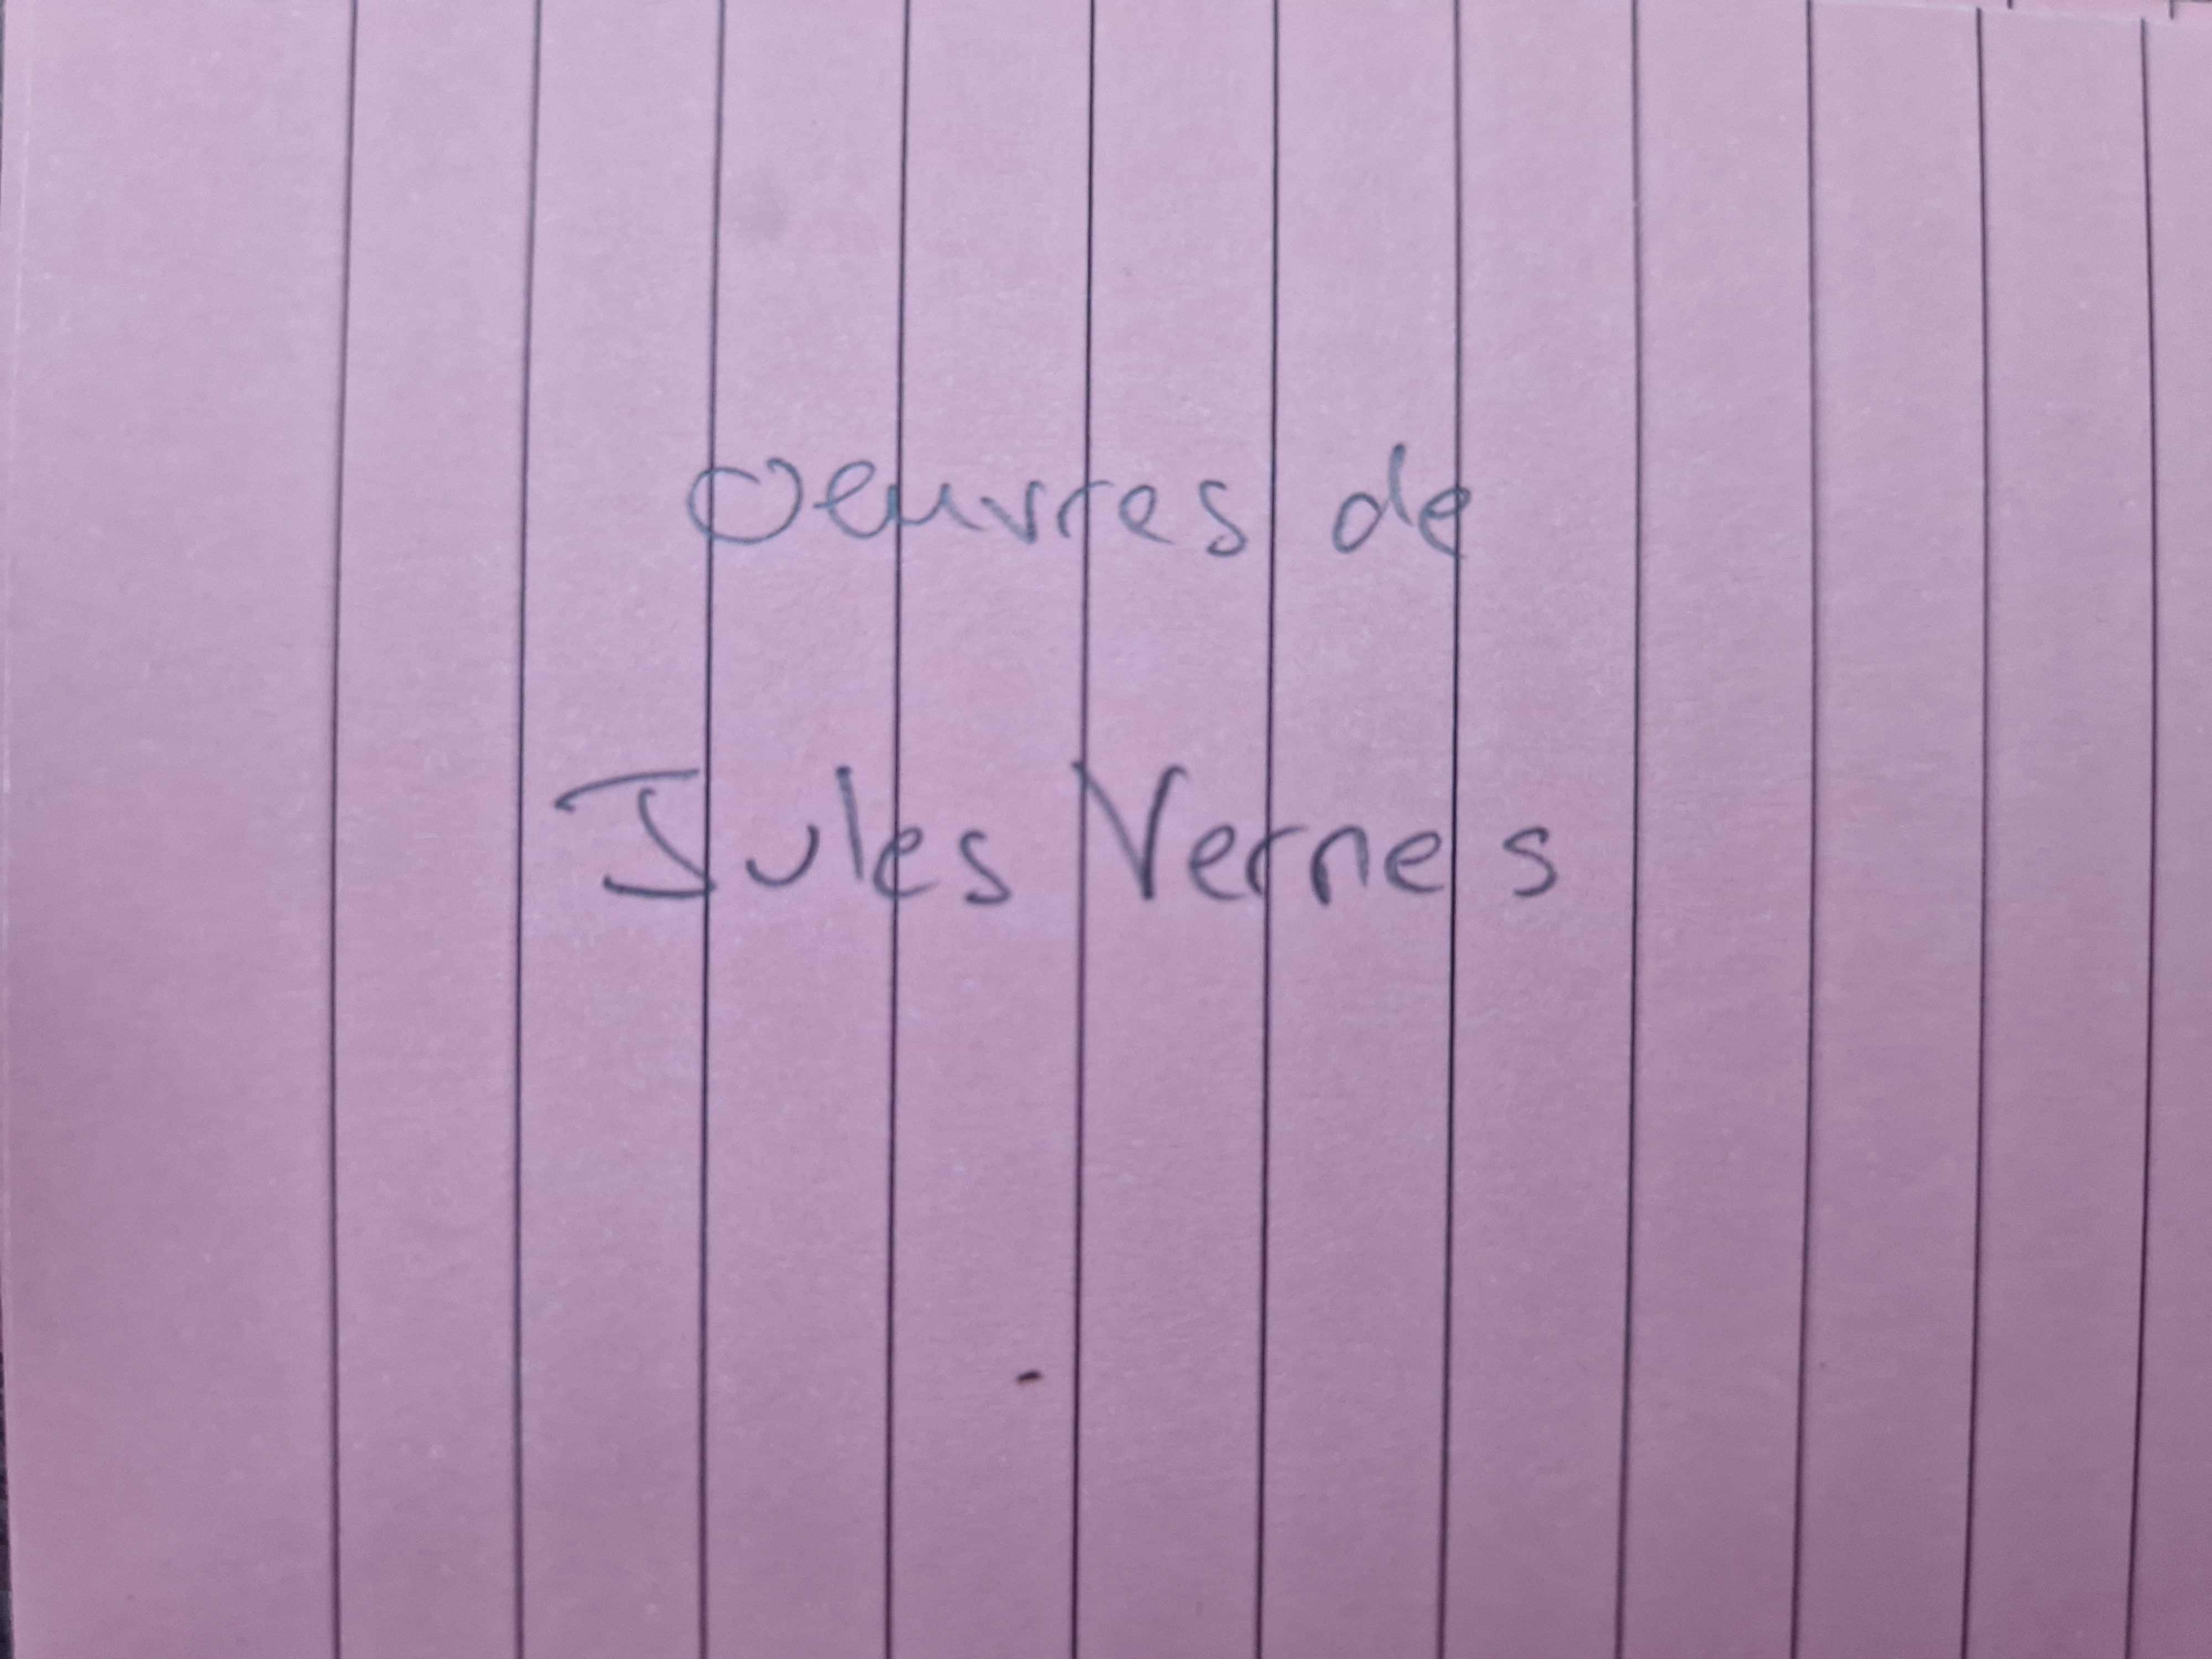 oeuvres de
Jules Vernes